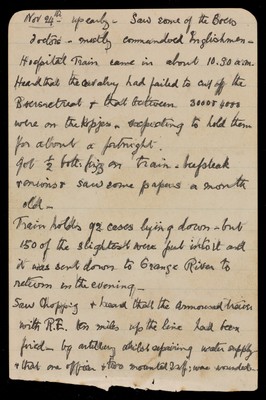 Nov 24th up early - Saw some of the Boers
doctors - mostly commandeered Englishmen -
Hospital Train came in about 10.30 a.m.
Heard that the cavalry had failed to cut off the
Boers retreat & that between 3000 & 4000
were on the kopjes - expecting to hold them
for about a fortnight.
Got ½ bott. fizz on train - beefsteak
& onions & saw some papers a month
old -
Train holds 92 cases lying down - but
150 of the slightest were put into it and
it was sent down to Orange River to
return in the evening -
Saw Chopping & heard that the armoured train
with R.E. ten miles up the line had been
fired - by artillery whilst repairing water supply
& that one officer & two mounted Inf: were wounded -